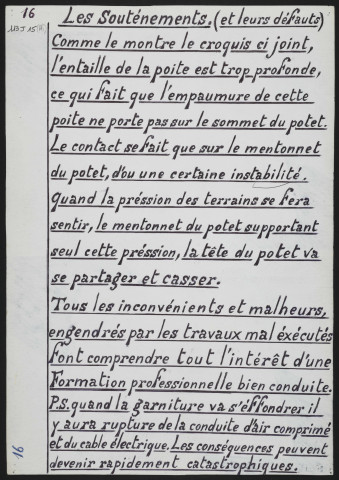 16
113 J 15
Les Souténements, (et leurs défauts)
Comme le montre le croquis ci joint,
l'entaille de la poite est trop profonde,
ce qui fait que l'empaumure de cette
poite ne porte pas sur le sommet du potet.
Le contact se fait que sur le mentonnet
du potet, d'ou une certaine instabilité.
quand la préssion des terrains se fera
sentir, le mentonnet du potet supportant
seul cette préssion, la tête du potet va
se partager et casser.
Tous les inconvénients et malheurs,
engendrés par les travaux mal éxécutés
font comprendre tout l'intérêt d'une
Formation professionnelle bien conduite.
P.S. quand la garniture va s'éffondrer il
y aura rupture de la conduite d'air comprimé
et du cable électrique. Les conséquences peuvent
devenir rapidement catastrophiques.
16